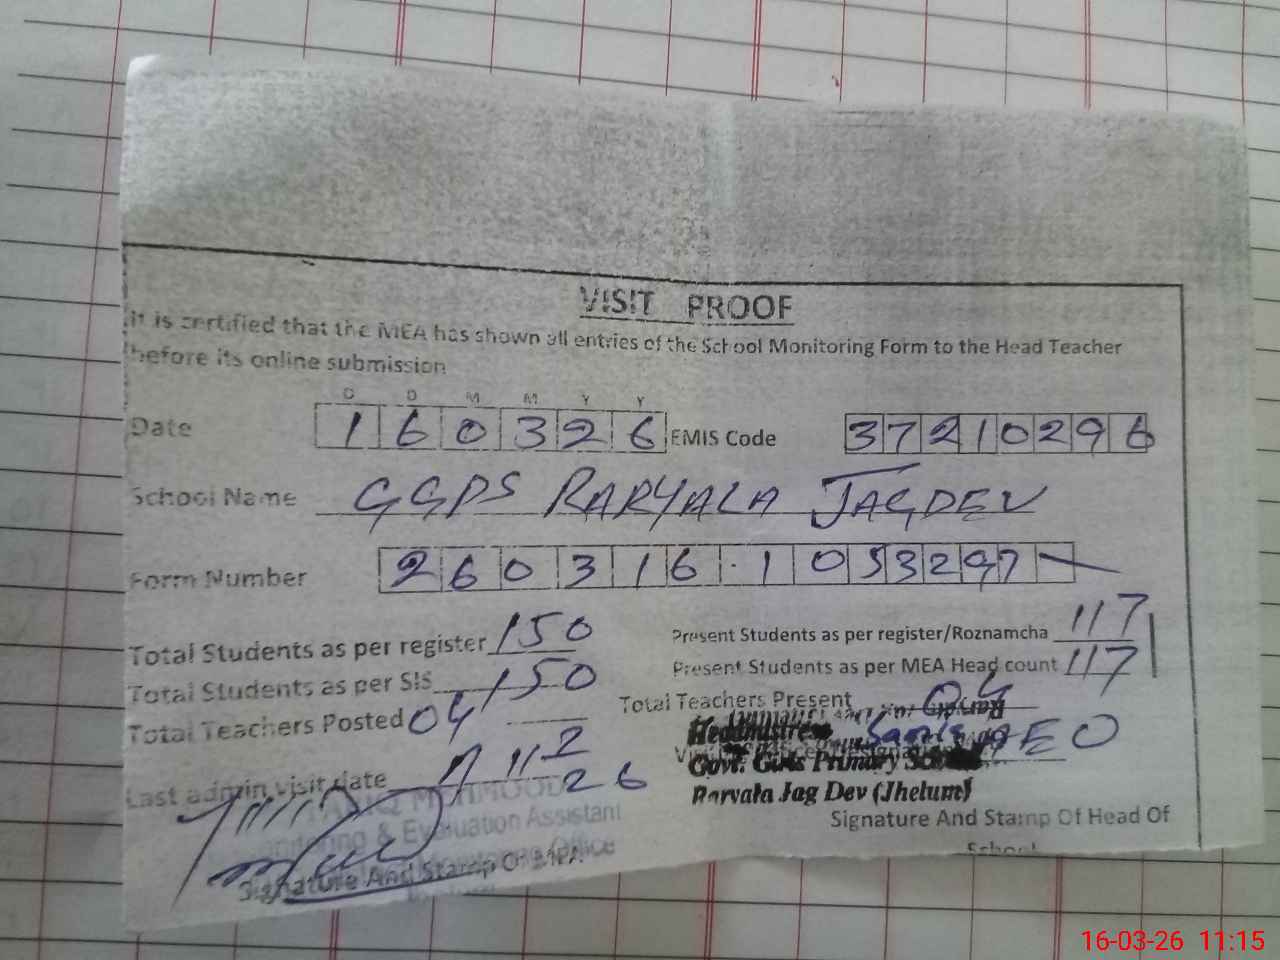 VISIT PROOF
It is certified that the MEA has shown all entries of the School Monitoring Form to the Head Teacher
before its online submission
D D M M Y Y
Date 160326 EMIS Code 37210296
School Name GGPS RARYALA JAGDEV
Form Number 260316-1053297
Total Students as per register 150 Present Students as per register/Roznamcha 117
Total Students as per SIS 150 Present Students as per MEA Head count 117
Total Teachers Posted 04 Total Teachers Present 04
Headmistress
AEO
Govt. Girls Primary School
Raryala Jag Dev (Jhelum)
Last admin visit date 2 26
MEHMOOD
& Evaluation Assistant
Office
Signature And Stamp Of MEA
Signature And Stamp Of Head Of
School
16-03-26 11:15